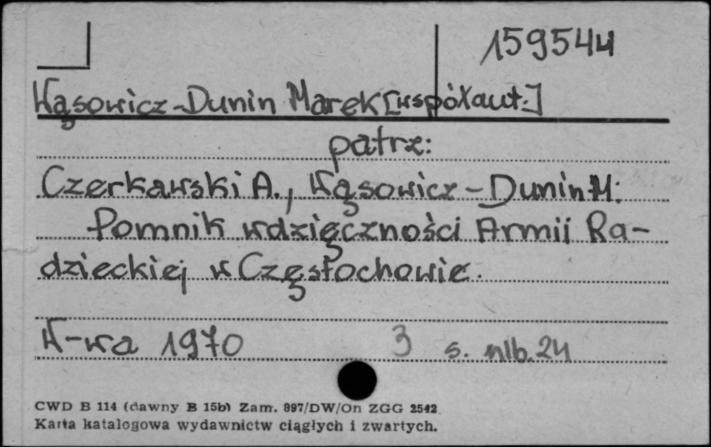 159544
Wąsowicz-Dunin Marek [współaut.]
patrz:
Czerkawski A., Wąsowicz-Dunin M:
Pomnik wdzięczności Armii Ra-
dzieckiej w Częstochowie.
W-wa 1970 3 s. nlb. 24
CWD B 114 (dawny B 15b) Zam. 897/DW/On ZGG 2542
Karta katalogowa wydawnictw ciągłych i zwartych.